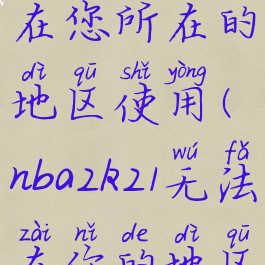 在您所在的
dì qū shǐ yòng
地区使用(
wú fǎ
nba2k21无法
zài nǐ de dì qū
在你的地区